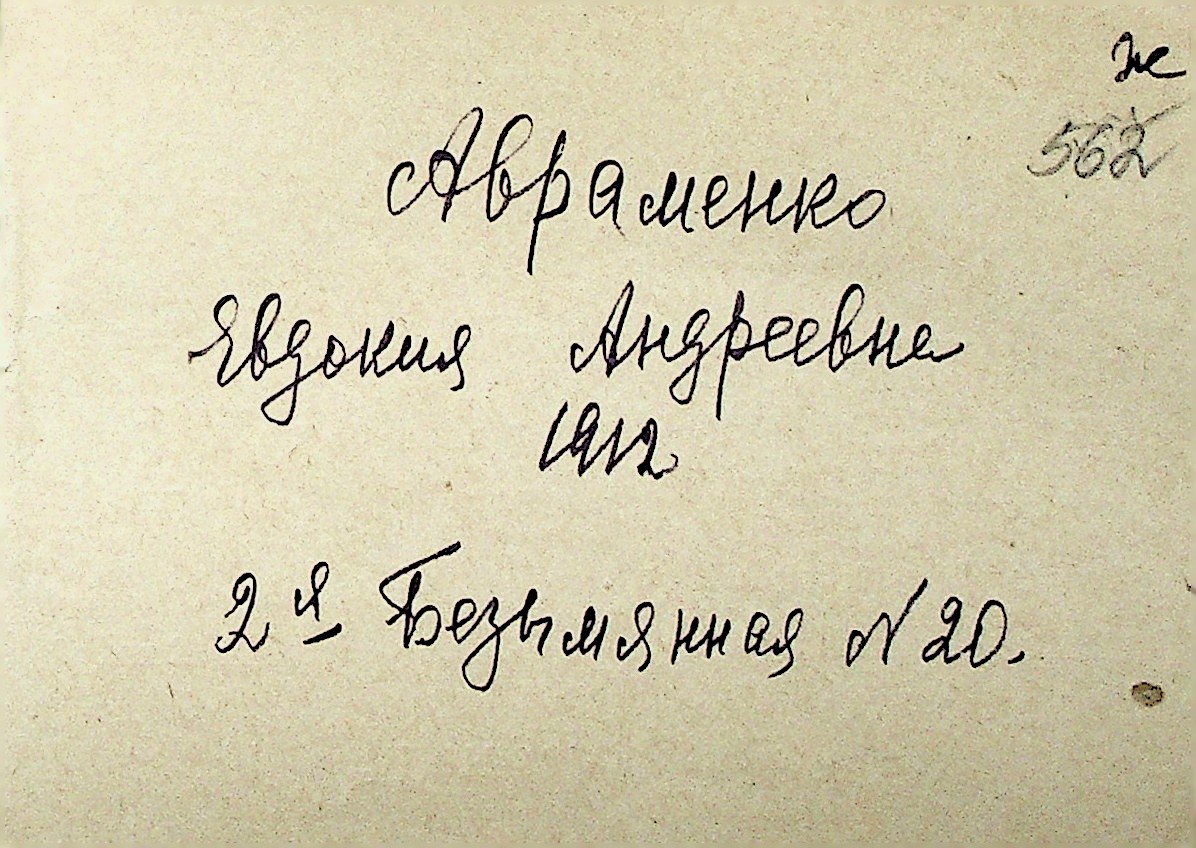 ж
562
Авраменко
Евдокия Андреевна
1912
2я Безымянная N 20.